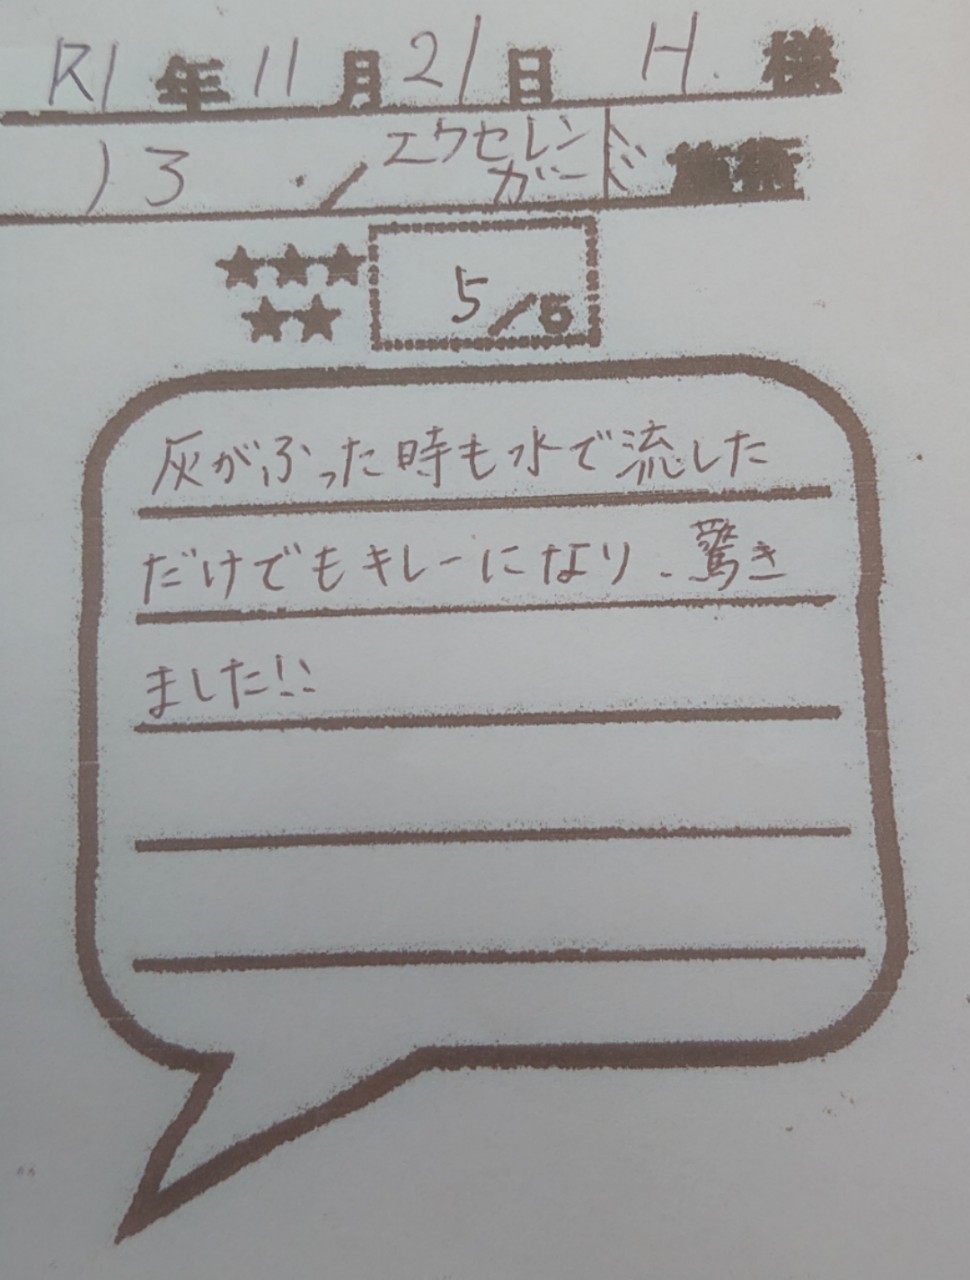 R1年11月21日 H.様
13 / エクセレント
ガード 施術
★★★ 5/5
★★
灰がふった時も水で流した
だけでもキレーになり、驚き
ました!!